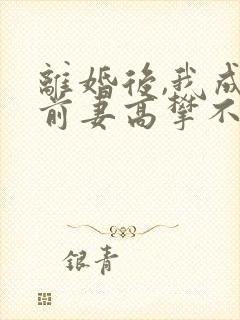 離婚後,我成
前妻高攀不
银青